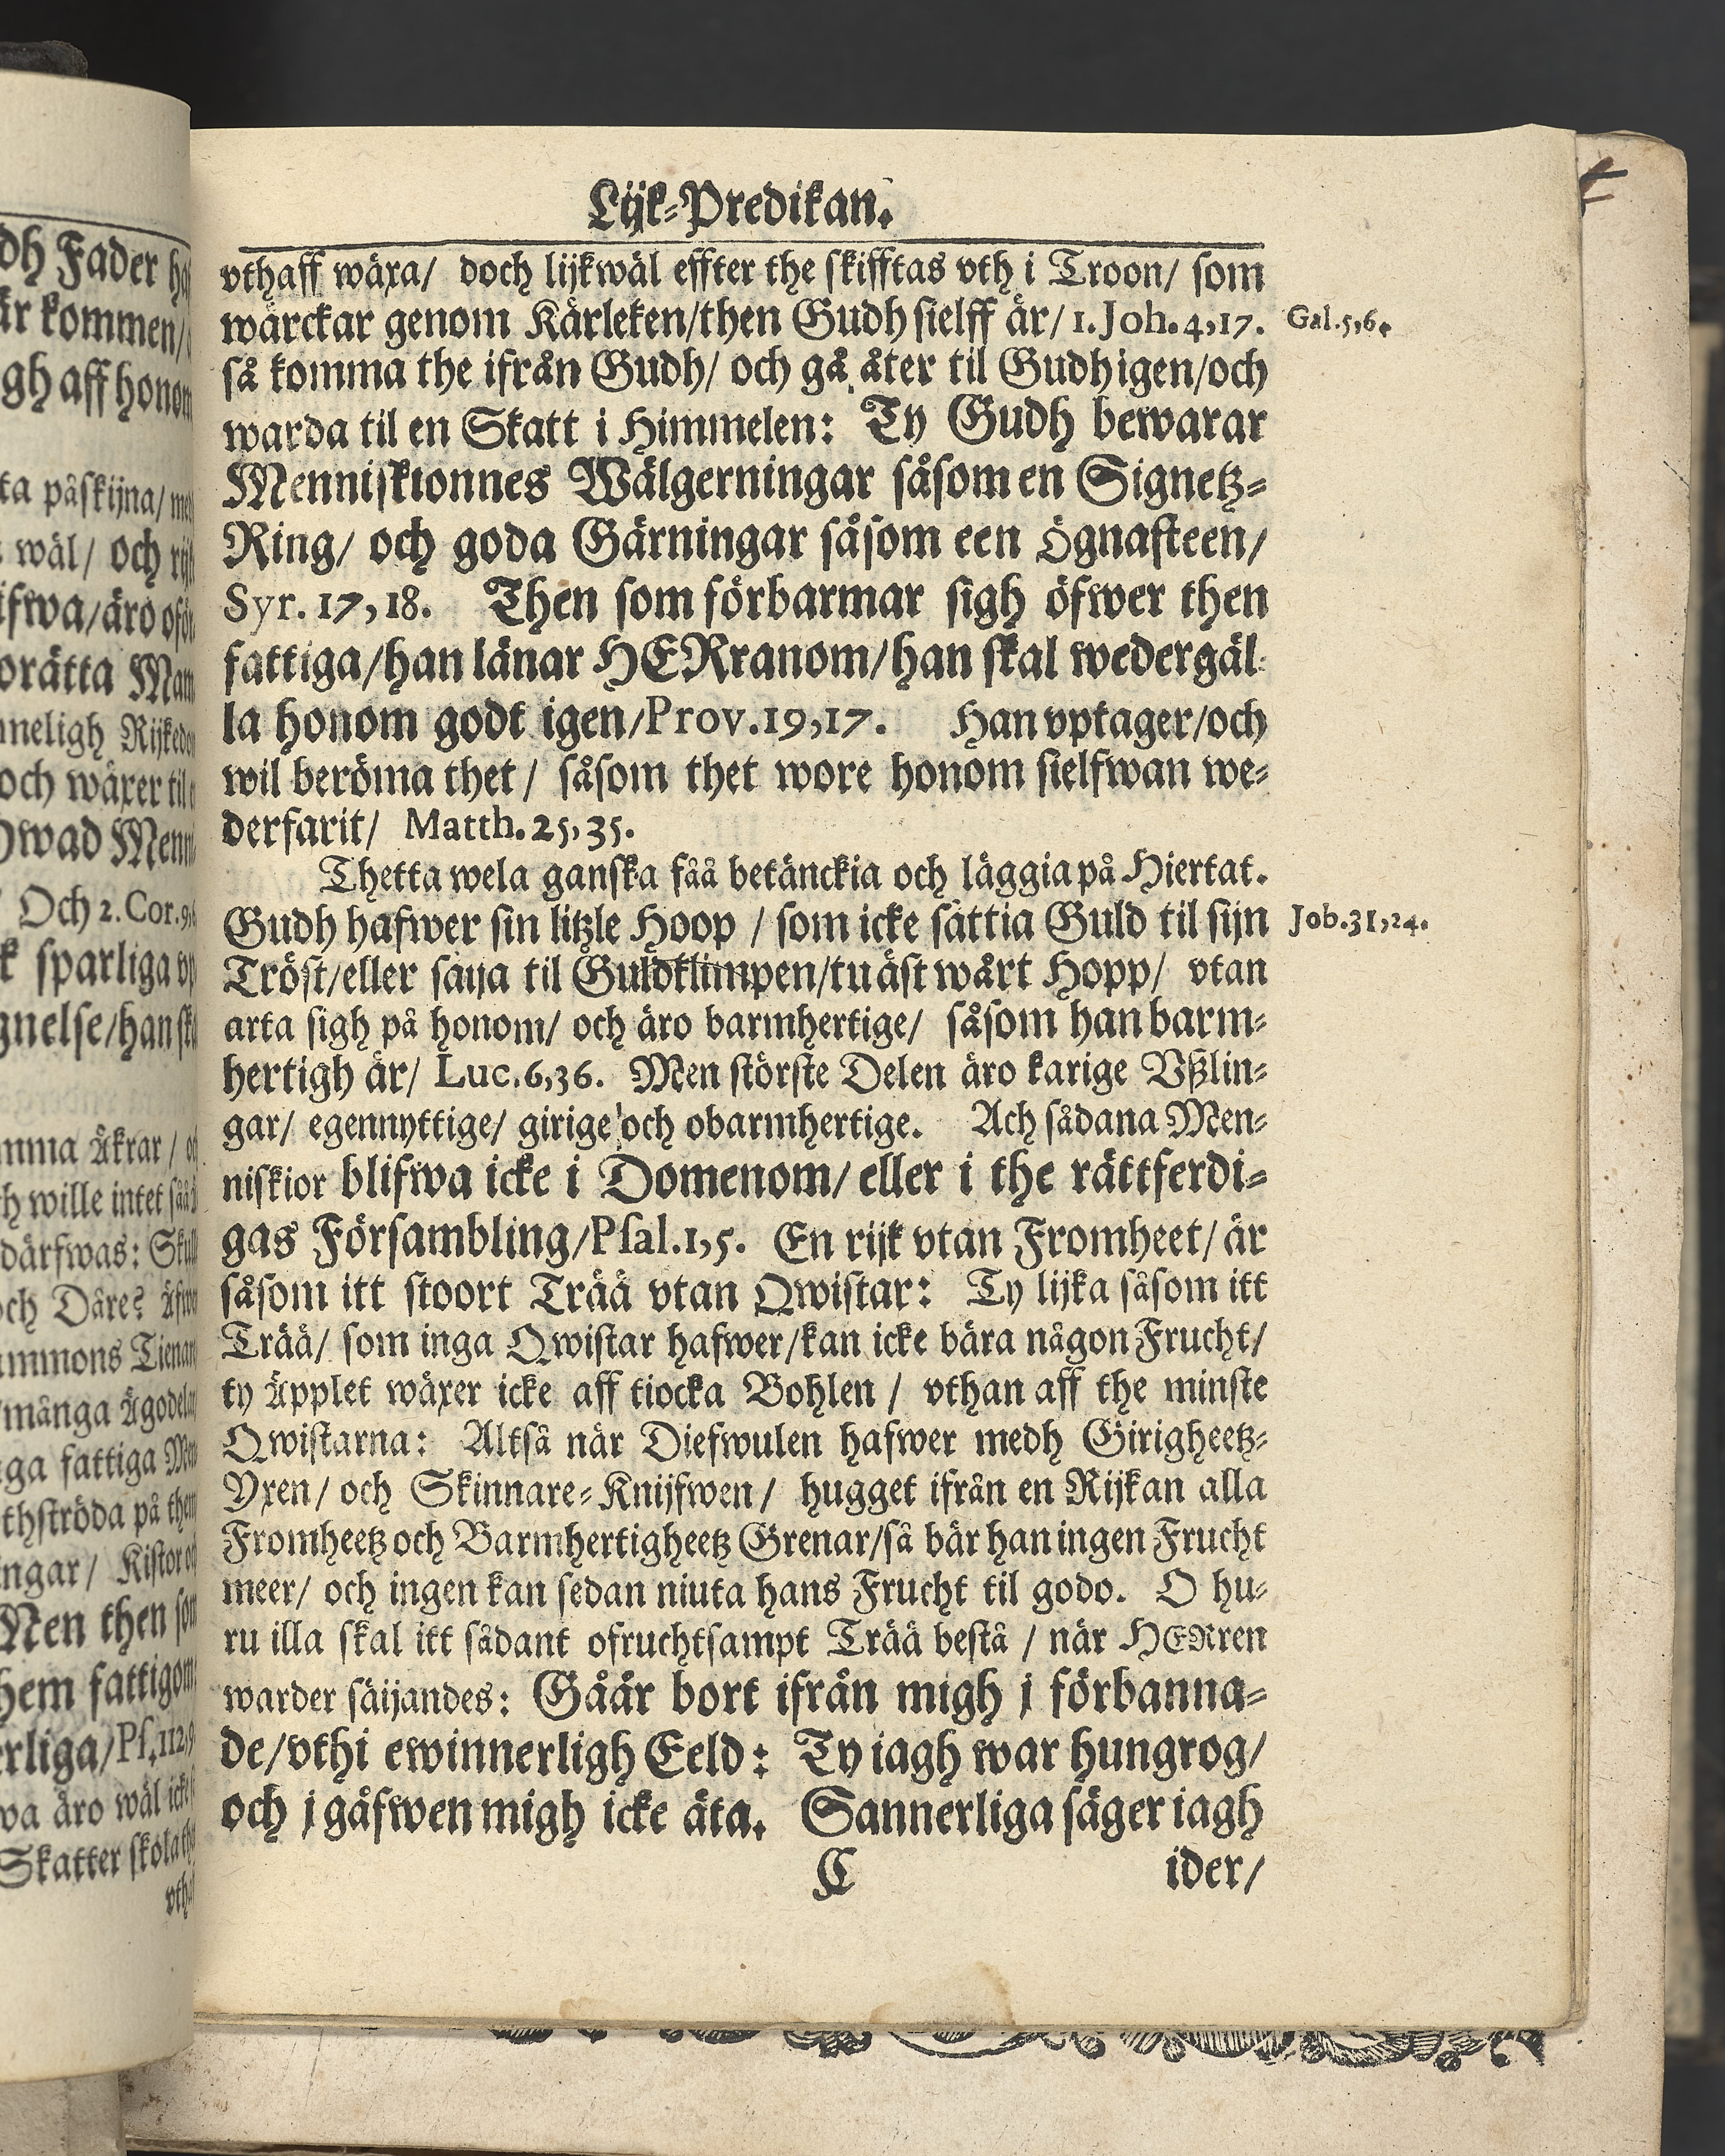 dh Fader
är kommen/
gh aff honom
ta påskijna/
wäl/ och
ifwa/äro
orätta
neligh
och wäxer til
Och 2. Cor. 9,
sparliga
gnelse/han
mma Åkrar /
h wille intet
därfwas:
och Däre?
mmons
många
ga fattiga
thströda på
ngar/
Men then
hem fattigom
rliga/Ps. 112,9
wa äro wäl
Skatter skola
Lijk-Predikan.
vthaff wäxa/ doch lijkwäl effter the skifftas vth i Troon/ som
wärckar genom Kärleken/then Gudh sielff är/ 1. Joh. 4,17. Gal. 5,6.
så komma the ifrån Gudh/ och gå åter til Gudh igen/och
warda til en Skatt i Himmelen: Ty Gudh bewarar
Menniskionnes Wälgerningar såsom en Signetz-
Ring/ och goda Gärningar såsom een Ögnasteen/
Syr. 17,18. Then som förbarmar sigh öfwer then
fattiga/han länar HERranom/han skal wedergäl-
la honom godt igen/Prov. 19,17. Han vptager/och
wil beröma thet/ såsom thet wore honom sielfwan we-
derfarit/ Matth. 25,35.
Thetta wela ganska fåå betänckia och läggia på Hiertat.
Gudh hafwer sin litzle Hoop / som icke sättia Guld til sijn Job. 31,24.
Tröst/eller säija til Guldklimpen/tu äst wårt Hopp/ vtan
arta sigh på honom/ och äro barmhertige/ såsom han barm-
hertigh är/ Luc. 6,36. Men störste Delen äro karige Vßlin-
gar/ egennyttige/ girige och obarmhertige. Ach sådana Men-
niskior blifwa icke i Domenom/ eller i the rättferdi-
gas Försambling/Psal. 1,5. En rijk vtan Fromheet/ är
såsom itt stoort Trää vtan Qwistar: Ty lijka såsom itt
Trää/ som inga Qwistar hafwer/kan icke bära någon Frucht/
ty Äpplet wäxer icke aff tiocka Bohlen / vthan aff the minste
Qwistarna: Altså när Diefwulen hafwer medh Girigheetz-
Yxen/ och Skinnare-Knijfwen/ hugget ifrån en Rijkan alla
Fromheetz och Barmhertigheetz Grenar/så bär han ingen Frucht
meer/ och ingen kan sedan niuta hans Frucht til godo. O hu-
ru illa skal itt sådant ofruchtsampt Trää bestå / när HERren
warder säijandes: Gåår bort ifrån migh j förbanna-
de/vthi ewinnerligh Eeld: Ty iagh war hungrog/
och j gåfwen migh icke äta. Sannerliga säger iagh
C ider/